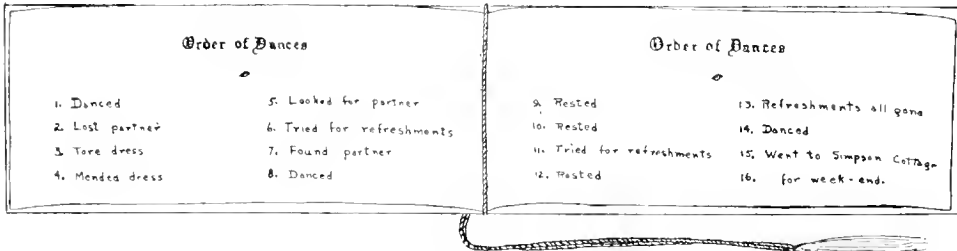 Order of Dances
1. Danced
2. Lost partner
3. Tore dress
4. Mended dress
5. Looked for partner
6. Tried for refreshments
7. Found partner
8. Danced
Order of Dances
9. Rested
10. Rested
11. Tried for refreshments
12. Rested
13. Refreshments all gone
14. Danced
15. Went to Simpson Cottage
16. for week-end.